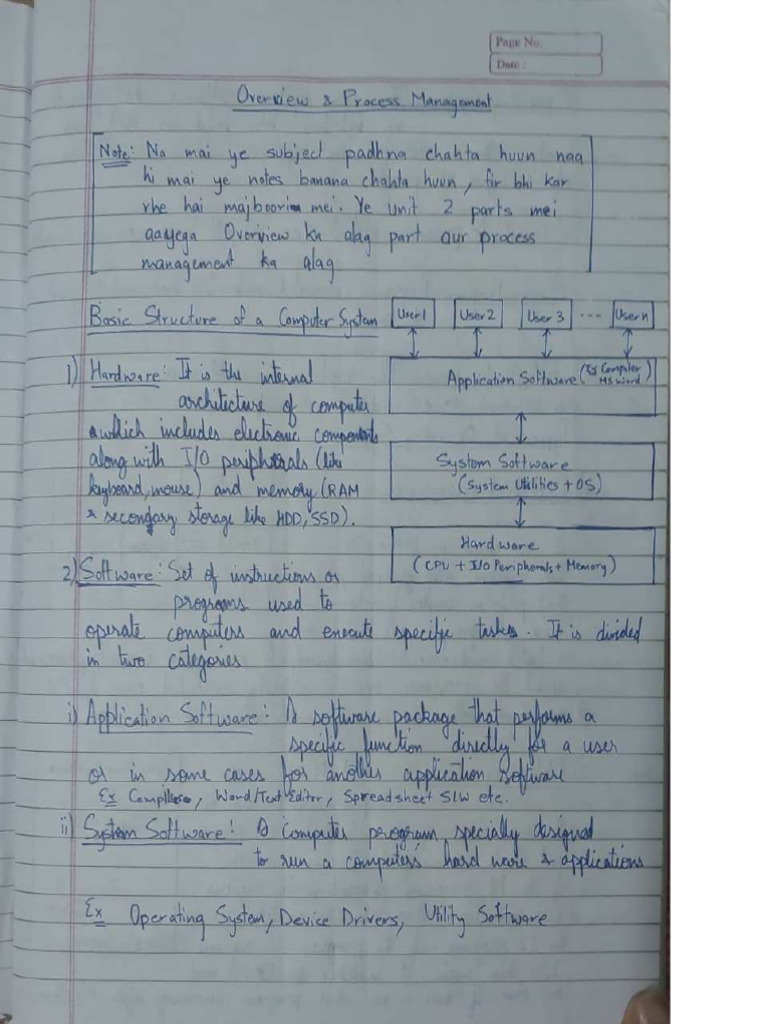 Page No.
Date :
Overview & Process Management
Note: Na mai ye subject padhna chahta huun naa
hi mai ye notes banana chahta huun, fir bhi kar
rhe hai majboori mei. Ye unit 2 parts mei
aayega Overview ka alag part aur process
management ka alag
Basic Structure of a Computer System
User 1 User 2 User 3 ... User n
Application Software (Ex Compiler
MS Word)
System Software
(System Utilities + OS)
Hardware
(CPU + I/O Peripherals + Memory)
1) Hardware: It is the internal
architecture of computer
which includes electronic components
along with I/O peripherals (like
keyboard, mouse) and memory (RAM
& secondary storage like HDD, SSD).
2) Software: Set of instructions or
programs used to
operate computers and execute specific tasks. It is divided
in two categories
i) Application Software: A software package that performs a
specific function directly for a user
or in some cases for another application software
Ex Compilers, Word/Text Editor, Spreadsheet S/W etc.
ii) System Software: A computer program specially designed
to run a computers hard ware & applications
Ex Operating System, Device Drivers, Utility Software